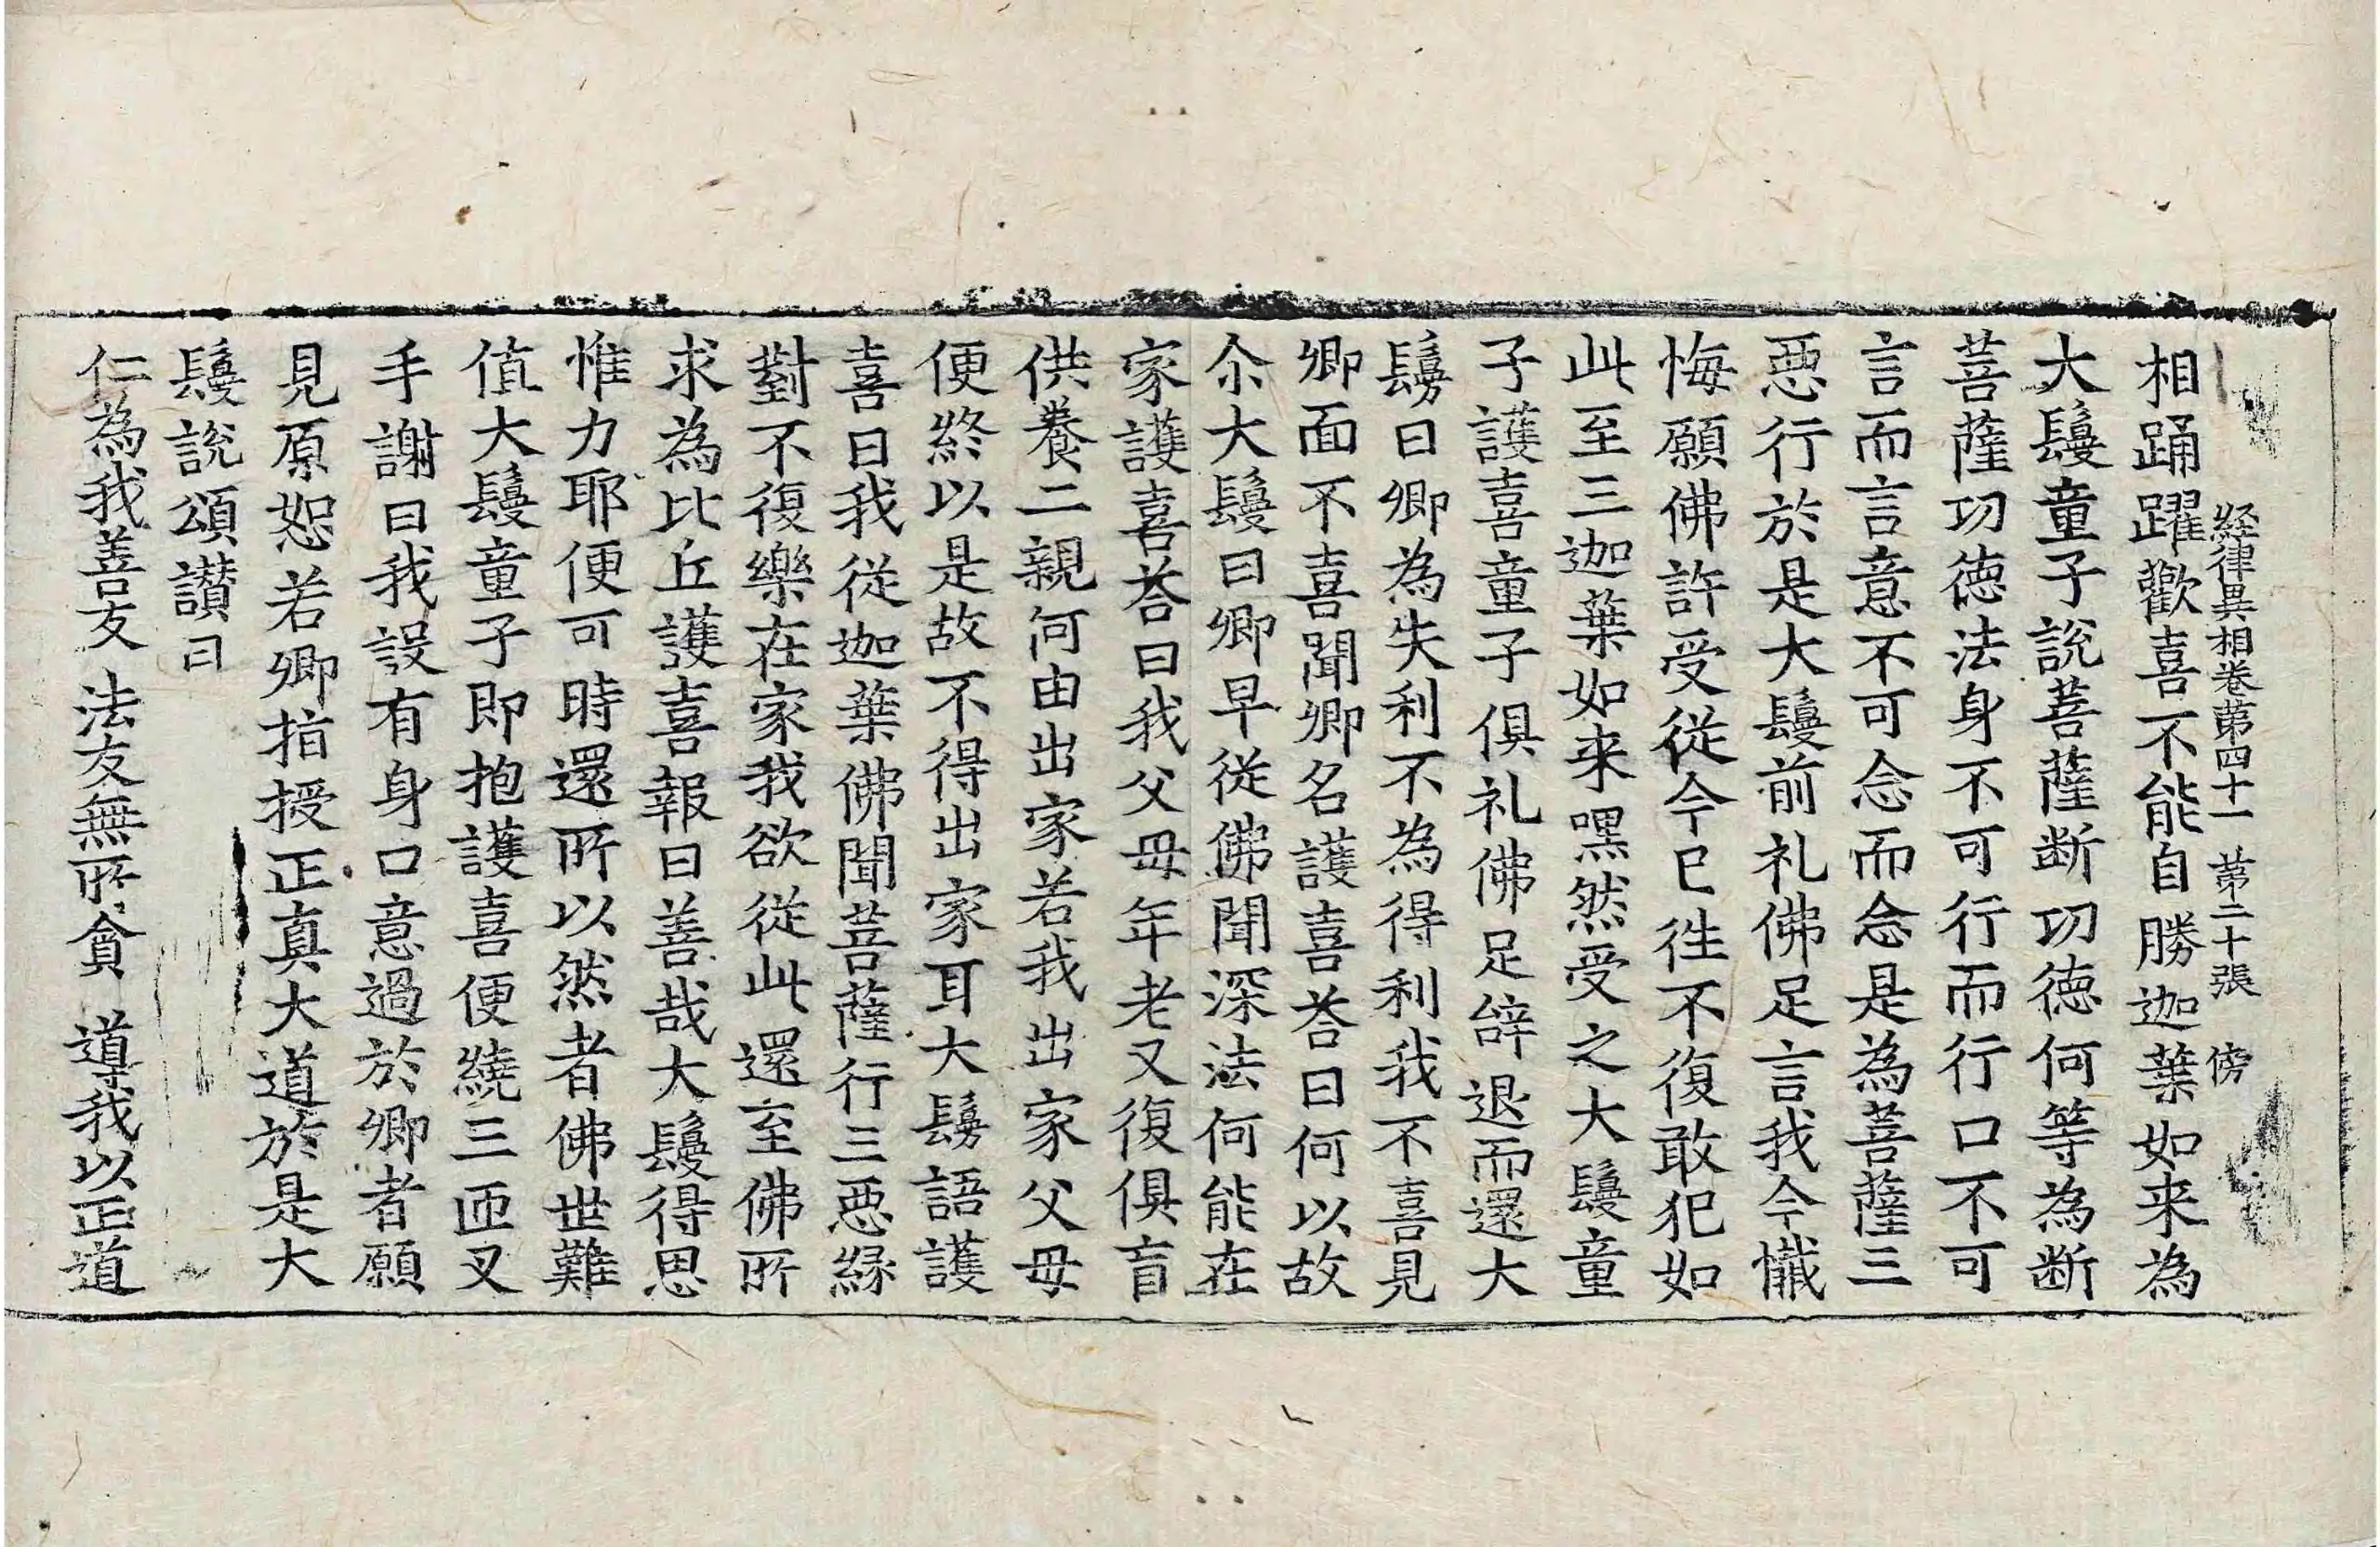 経律異相卷苐四十一 苐二十張 傍
相踊躍歡喜不能自勝迦葉如来為
大鬘童子說菩薩断功徳何等為断
菩薩功徳法身不可行而行口不可
言而言意不可念而念是為菩薩三
惡行於是大鬘前礼佛足言我今懴
悔願佛許受從今已徃不復敢犯如
此至三迦葉如来嘿然受之大鬘童
子護喜童子俱礼佛足辝退而還大
鬘曰卿為失利不為得利我不喜見
卿面不喜聞卿名護喜荅曰何以故
尒大鬘曰卿早從佛聞深法何能在
家護喜荅曰我父母年老又復俱盲
供養二親何由出家若我出家父母
便終以是故不得出家耳大鬘語護
喜曰我從迦葉佛聞菩薩行三惡緣
對不復樂在家我欲從此還至佛所
求為比丘護喜報曰善哉大鬘得思
惟力耶便可時還所以然者佛世難
值大鬘童子即抱護喜便繞三匝叉
手謝曰我設有身口意過於卿者願
見原恕若卿指授正真大道於是大
鬘說頌讃曰
仁為我善友 法友無所貪 導我以正道